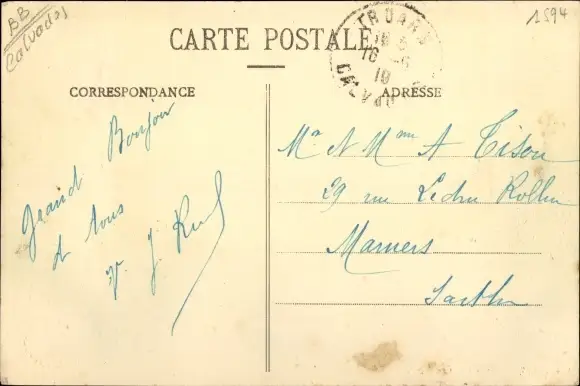 BB
Calvados
1594
CARTE POSTALE
TROARN
16 - 6
CALVADOS
CORRESPONDANCE
ADRESSE
Grand Bonjour
à tous
J.
Mr & Mme A Tison
29 rue Ledru Rollin
Mamers
Sarthe